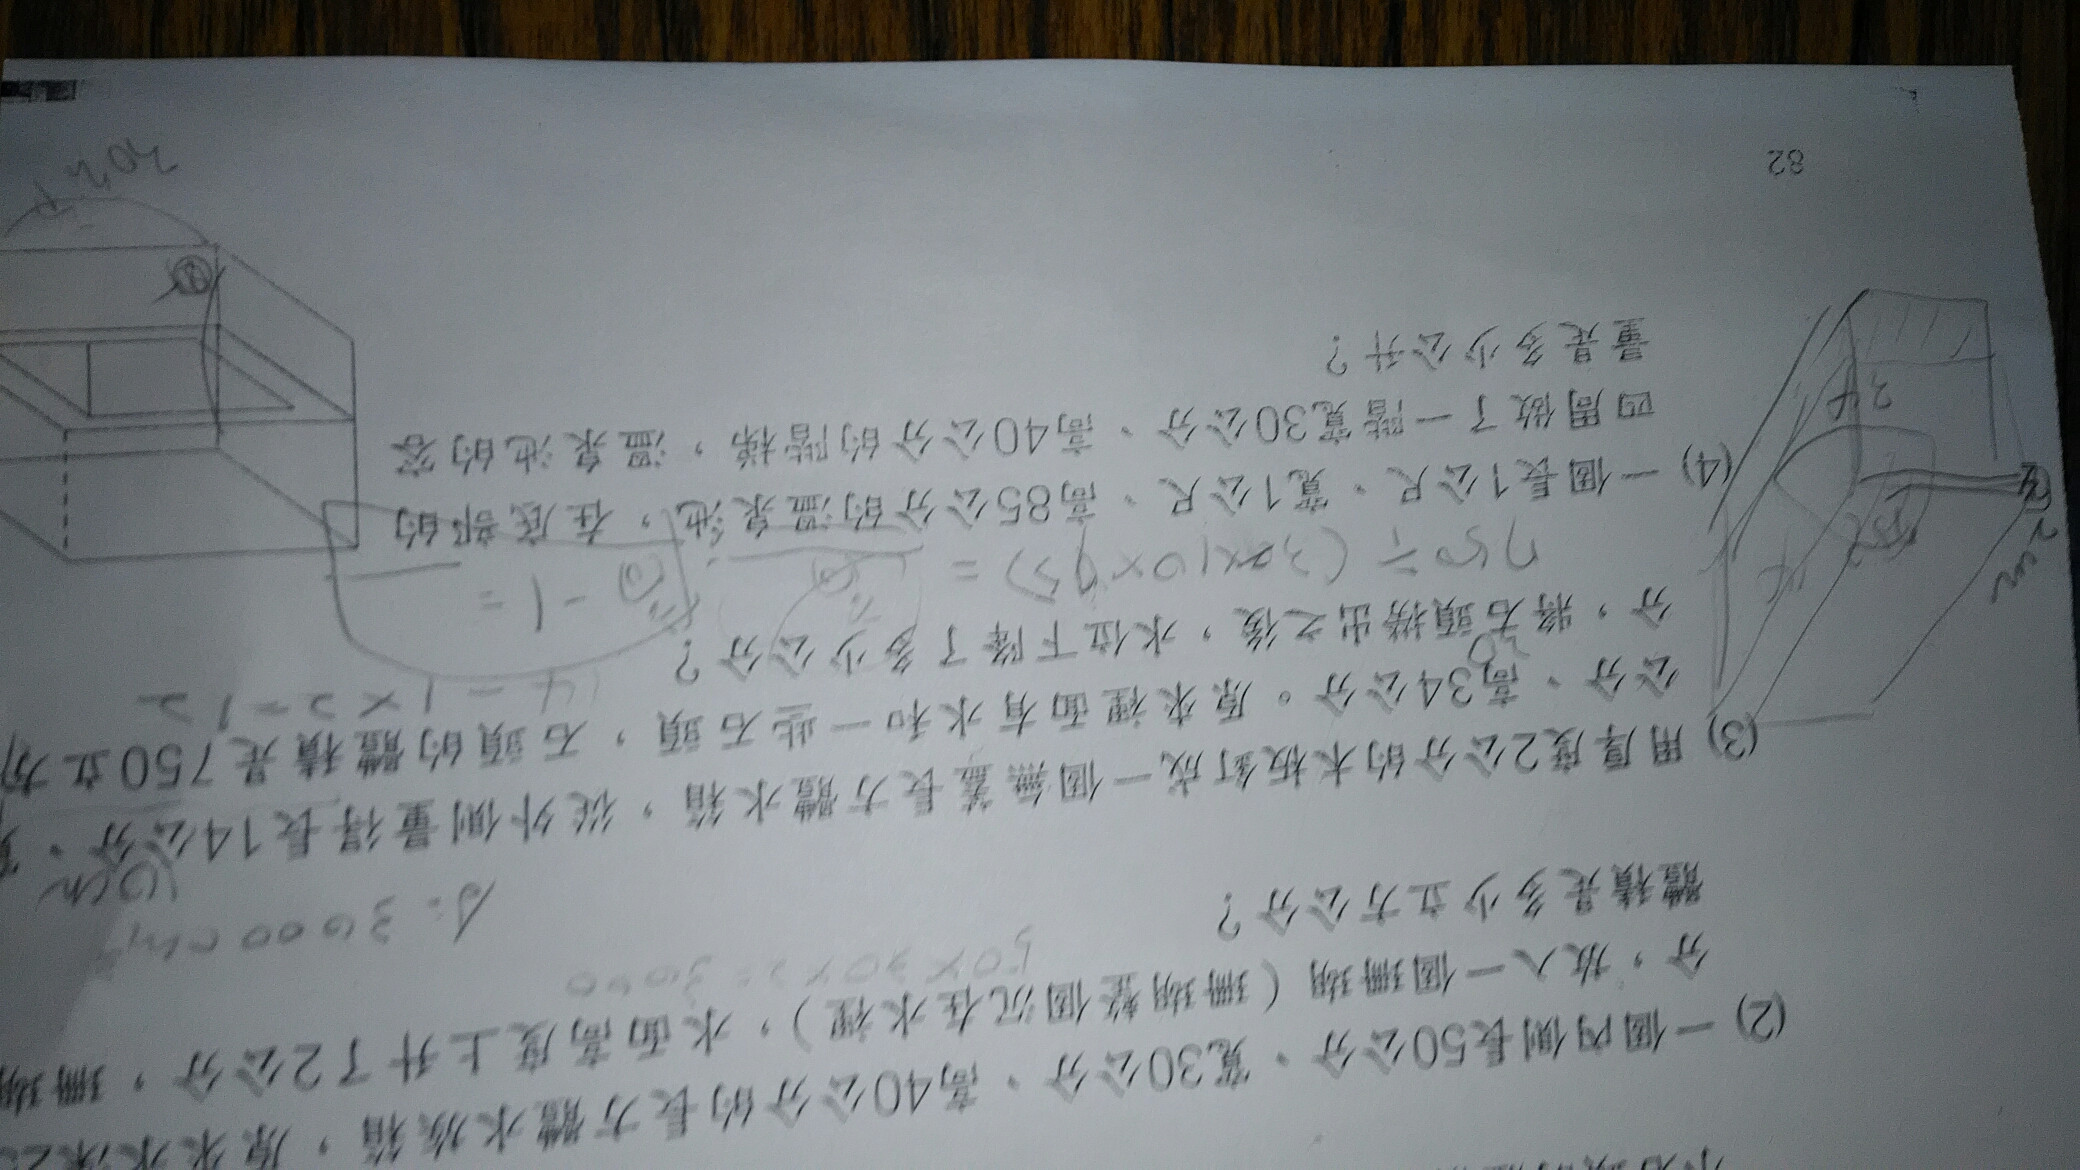 (2) 一個內側長50公分、寬30公分、高40公分的長方體水族箱，原來水深2
分，放入一個珊瑚（珊瑚整個沉在水裡），水面高度上升了2公分，珊瑚
體積是多少立方公分？
50×30×2=3000
A: 3000cm³
10cm
(3) 用厚度2公分的木板釘成一個無蓋長方體水箱，從外側量得長14公分、寬
公分、高34公分。原來裡面有水和一些石頭，石頭的體積是750立方
分，將石頭撈出之後，水位下降了多少公分？
14-1×2=12
-1=
(4) 一個長1公尺、寬1公尺、高85公分的溫泉池，在底部的
四周做了一階寬30公分、高40公分的階梯，溫泉池的容
量是多少公升？
34
2cm
82